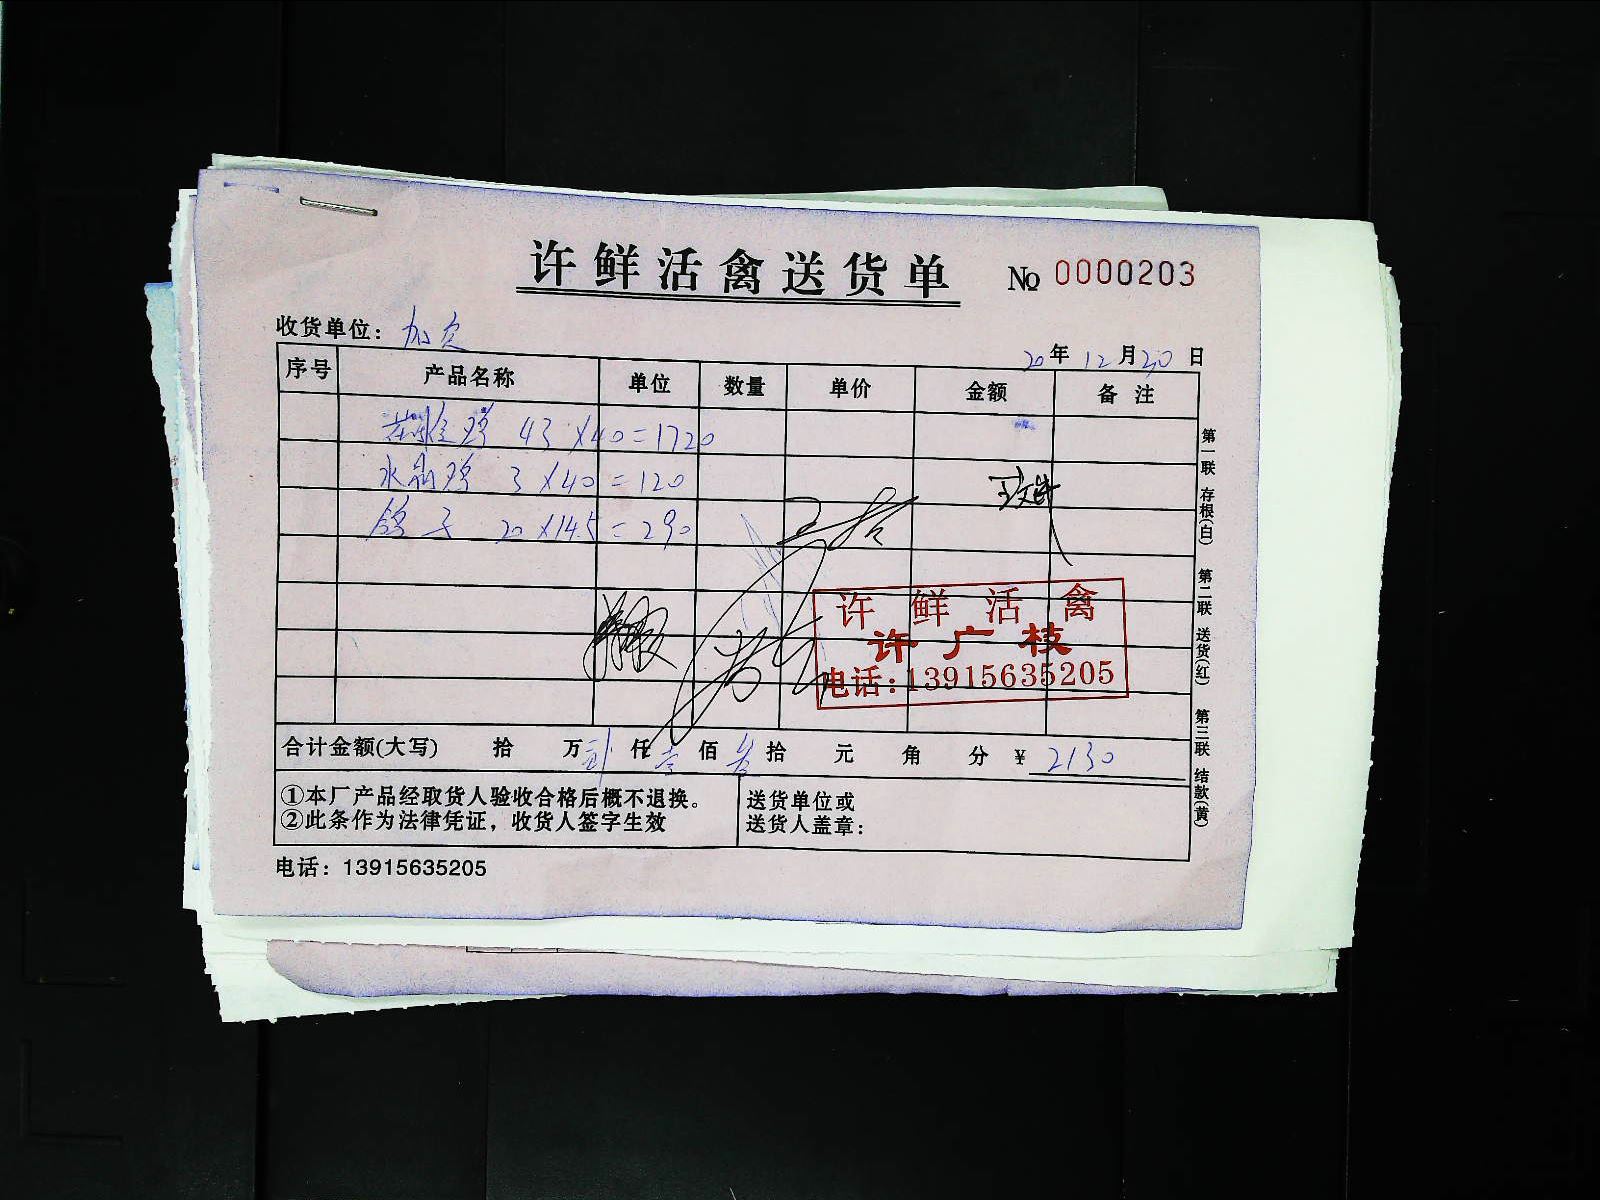 许鲜活禽送货单 № 0000203
收货单位：
20年12月20日
序号 产品名称 单位 数量 单价 金额 备注
鸡 43×40=1720
水晶鸡 3×40=120
鸽子 20×14.5=290
许鲜活禽
许广枝
电话:13915635205
合计金额(大写) 拾 万 贰 仟 壹 佰 叁 拾 元 角 分 ¥ 2130
①本厂产品经取货人验收合格后概不退换。
②此条作为法律凭证，收货人签字生效
送货单位或
送货人盖章：
电话：13915635205
第一联 存根(白) 第二联 送货(红) 第三联 结款(黄)